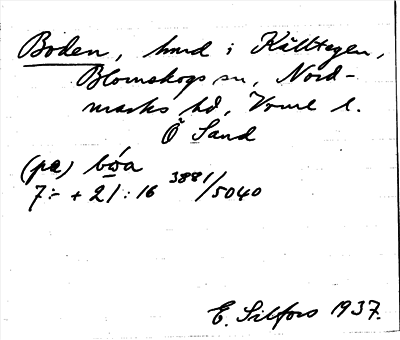 Boden, hmd i Källtegen,
Blomskogs sn, Nord-
marks hd, Vrml l.
Ö Sand
(pœ) bωa
7:- + 21:16 3881/5040
E. Silfors 1937.